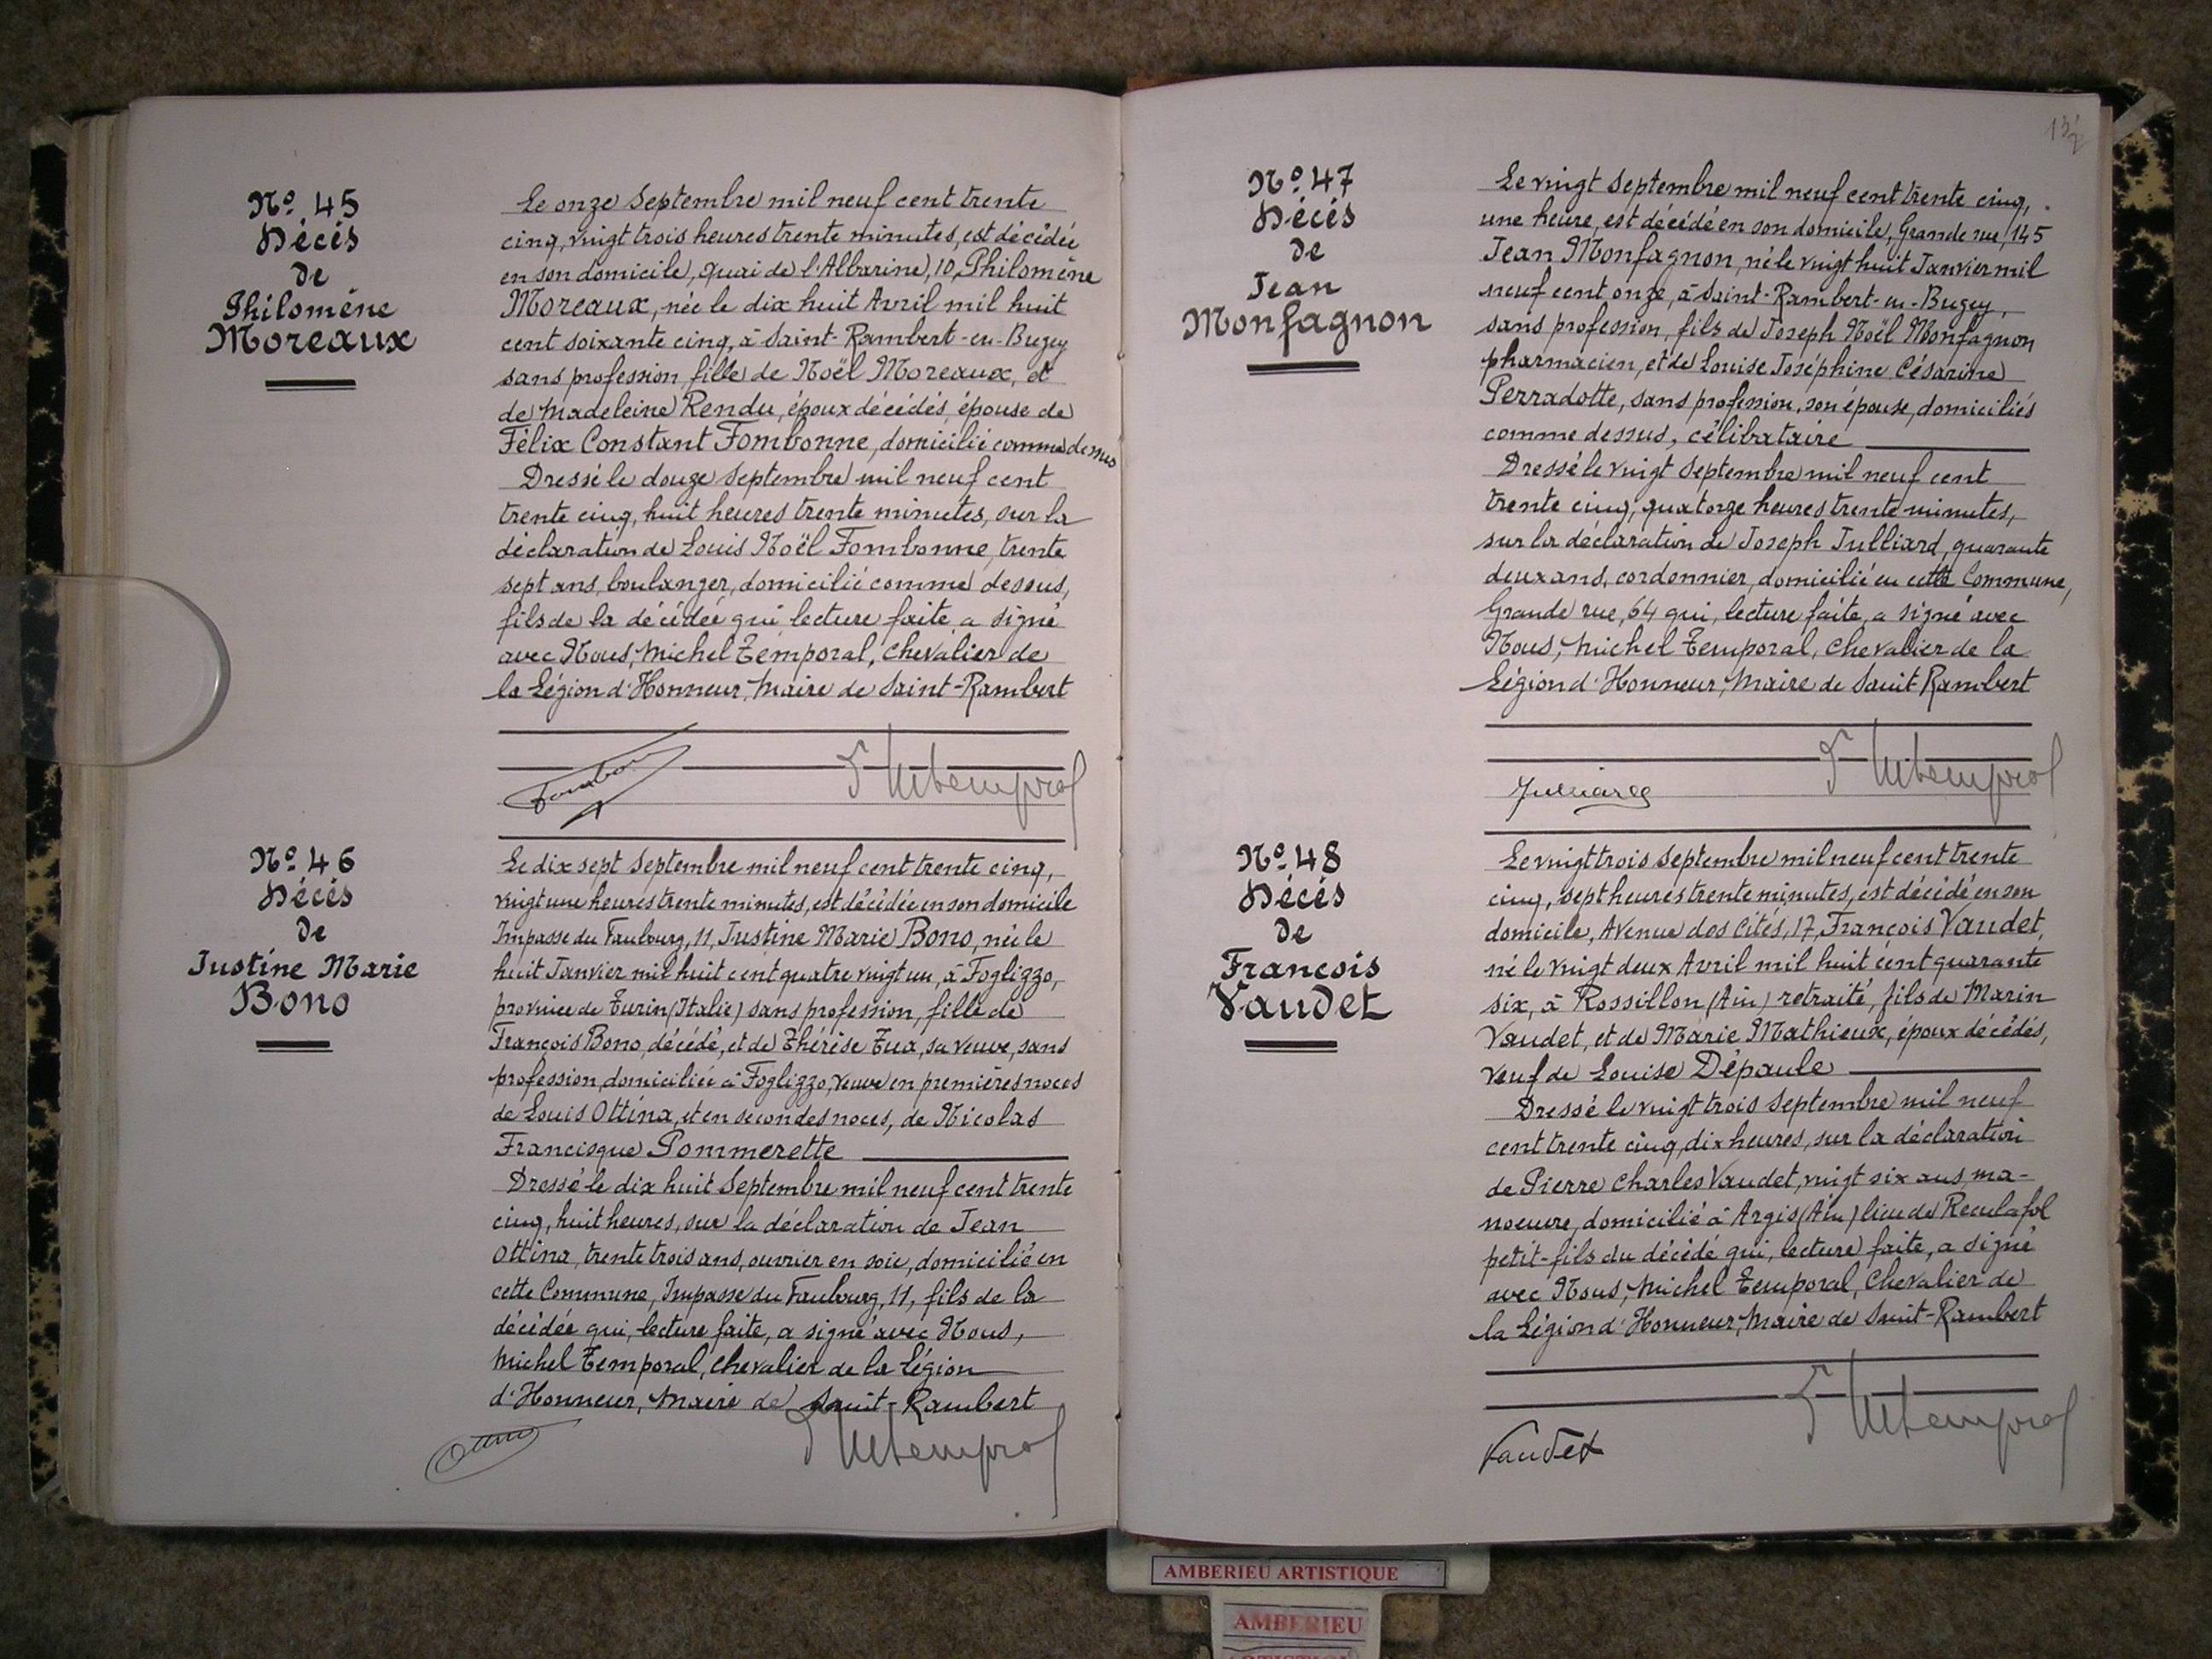 N° 45
Décès
de
Philomène
Moreaux
Le onze Septembre mil neuf cent trente
cinq, vingt trois heures trente minutes, est décédée
en son domicile, quai de l'Albarine, 10, Philomène
Moreaux, née le dix huit Avril mil huit
cent soixante cinq, à Saint-Rambert-en-Bugey
sans profession, fille de Noël Moreaux, et
de Madeleine Rendu, époux décédés, épouse de
Félix Constant Fombonne, domicilié comme dessus
Dressé le douze Septembre mil neuf cent
trente cinq, huit heures trente minutes, sur la
déclaration de Louis Noël Fombonne, trente
sept ans, boulanger, domicilié comme dessus,
fils de la décédée qui lecture faite, a signé
avec Nous, Michel Temporal, Chevalier de
la Légion d'Honneur, Maire de Saint-Rambert
N° 46
Décès
de
Justine Marie
Bono
Le dix sept Septembre mil neuf cent trente cinq,
vingt une heures trente minutes, est décédée en son domicile
Impasse du Faubourg, 11, Justine Marie Bono, née le
huit Janvier mil huit cent quatre vingt un, à Foglizzo,
province de Turin (Italie) sans profession, fille de
François Bono, décédé, et de Thérèse Tua, sa veuve, sans
profession, domiciliée à Foglizzo, veuve en premières noces
de Louis Ottina, et en secondes noces, de Nicolas
Francisque Pommerette
Dressé le dix huit Septembre mil neuf cent trente
cinq, huit heures, sur la déclaration de Jean
Ottina, trente trois ans, ouvrier en soie, domicilié en
cette Commune, Impasse du Faubourg, 11, fils de la
décédée qui, lecture faite, a signé avec Nous,
Michel Temporal, Chevalier de la Légion
d'Honneur, Maire de Saint-Rambert
N° 47
Décès
de
Jean
Monfagnon
Le vingt Septembre mil neuf cent trente cinq,
une heure, est décédé en son domicile, Grande rue, 145
Jean Monfagnon, né le vingt huit Janvier mil
neuf cent onze, à Saint-Rambert-en-Bugey,
sans profession, fils de Joseph Noël Monfagnon
pharmacien, et de Louise Joséphine Césarine
Perradotte, sans profession, son épouse, domiciliés
comme dessus, célibataire
Dressé le vingt Septembre mil neuf cent
trente cinq, quatorze heures trente minutes,
sur la déclaration de Joseph Julliard, quarante
deux ans, cordonnier, domicilié en cette Commune,
Grande rue, 64 qui, lecture faite, a signé avec
Nous, Michel Temporal, Chevalier de la
Légion d'Honneur, Maire de Saint Rambert
Julliard
N° 48
Décès
de
François
Vaudet
Le vingt trois Septembre mil neuf cent trente
cinq, sept heures trente minutes, est décédé en son
domicile, Avenue des Cités, 17, François Vaudet,
né le vingt deux Avril mil huit cent quarante
six, à Rossillon (Ain) retraité, fils de Marin
Vaudet, et de Marie Mathieux, époux décédés,
veuf de Louise Dépaule
Dressé le vingt trois Septembre mil neuf
cent trente cinq, dix heures, sur la déclaration
de Pierre Charles Vaudet, vingt six ans, ma-
noeuvre, domicilié à Argis (Ain) lieu de Reculafol
petit-fils du décédé qui, lecture faite, a signé
avec Nous, Michel Temporal, Chevalier de
la Légion d'Honneur, Maire de Saint-Rambert
Vaudet
AMBERIEU ARTISTIQUE
AMBERIEU